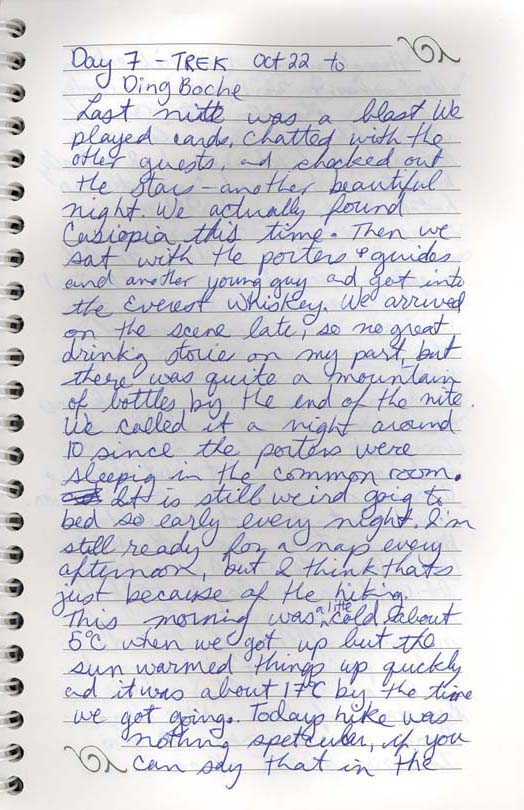 Day 7 - TREK Oct 22 to
Ding Boche
Last nitte was a blast We
played cards, chatted with the
other guests, and checked out
the stars - another beautiful
night. We actually found
Casiopia this time. Then we
sat with the porters & guides
and another young guy and got into
the Everest Whiskey. We arrived
on the scene late, so no great
drinkg storie on my part, but
there was quite a mountain
of bottles by the end of the nite.
We called it a night around
10 since the porters were
sleepig in the common room.
It is still weird goig to
bed so early every night. I'm
still ready for a nap every
afternoon, but I think thats
just because of the hiking.
This morning was a little cold about
5°C when we got up but the
sun warmed things up quckly
and it was about 17°C by the time
we got going. Todays hike was
nothing spetcular, if you
can say that in the